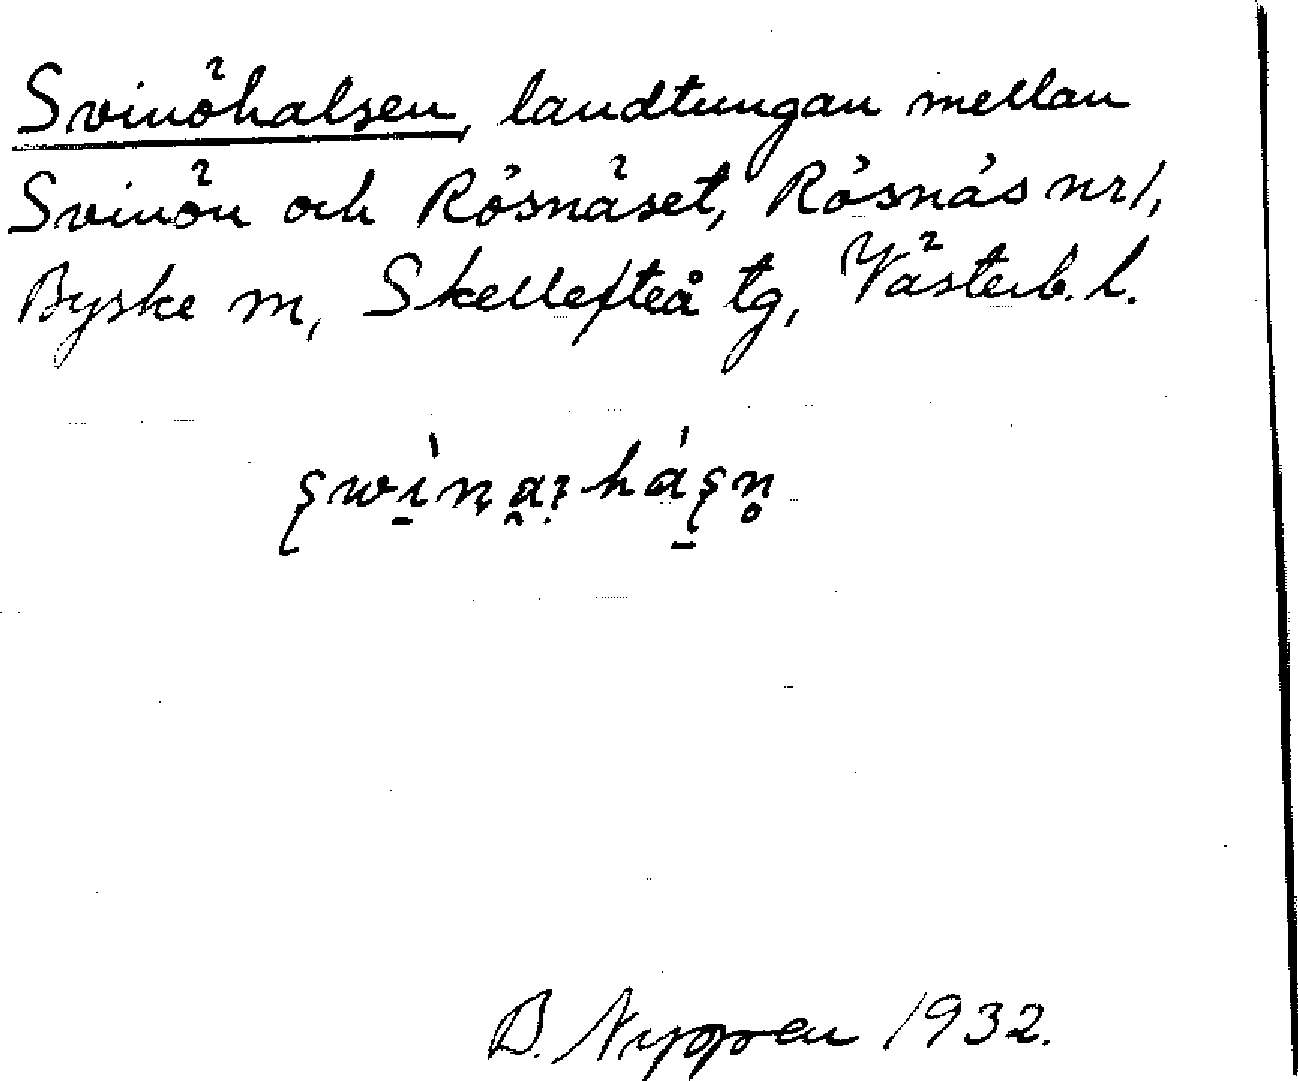 Svinöhalsen, landtungan mellan
Svinön och Rösnäset, Rösnäs nr 1,
Byske sn, Skellefteå tg, Västerb. l.
B. Nyppen 1932.